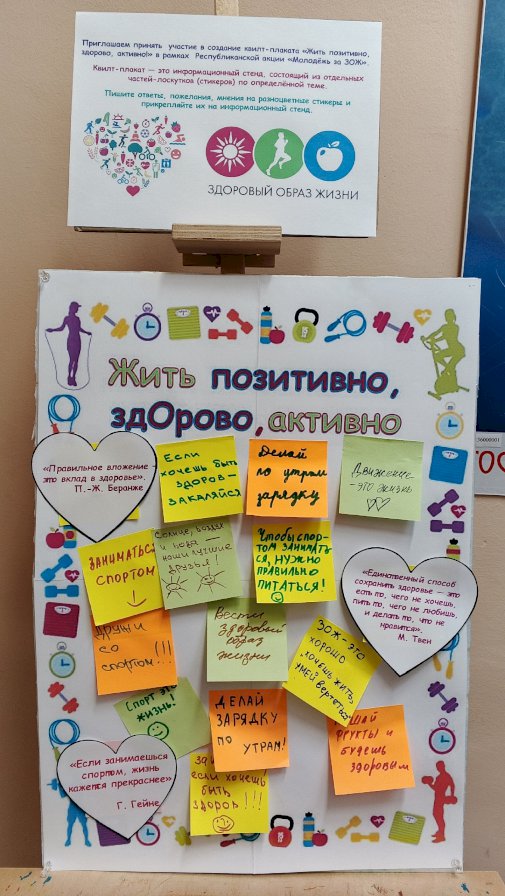 Приглашаем принять участие в создание квилт-плаката «Жить позитивно,
здорово, активно!» в рамках Республиканской акции «Молодёжь за ЗОЖ».
Квилт-плакат — это информационный стенд, состоящий из отдельных
частей-лоскутков (стикеров) по определённой теме.
Пишите ответы, пожелания, мнения на разноцветные стикеры и
прикрепляйте их на информационный стенд.
ЗДОРОВЫЙ ОБРАЗ ЖИЗНИ
Жить позитивно,
здОрово, активно
«Правильное вложение
это вклад в здоровье».
П.-Ж. Беранже
Если
хочешь быть
здоров —
закаляйся
Делай
по утрам
зарядку
Движение
- это жизнь
36000001
Заниматься
спортом
Солнце, воздух
и вода —
наши лучшие
друзья!
Чтобы спор-
том занимать-
ся, нужно
правильно
питаться!
«Единственный способ
сохранить здоровье — это
есть то, чего не хочешь,
пить то, чего не любишь,
и делать то, что не
нравится».
М. Твен
Дружи
со
спортом!!!
Вести
здоровый
образ
жизни
ЗОЖ - это
хорошо
хочешь жить,
умей вертеться
Спорт это
жизнь!
ДЕЛАЙ
ЗАРЯДКУ
ПО
УТРАМ!
фрукты и
будешь
здоровым
«Если занимаешься
спортом, жизнь
кажется прекраснее»
Г. Гейне
если хочешь
быть
здоров!!!